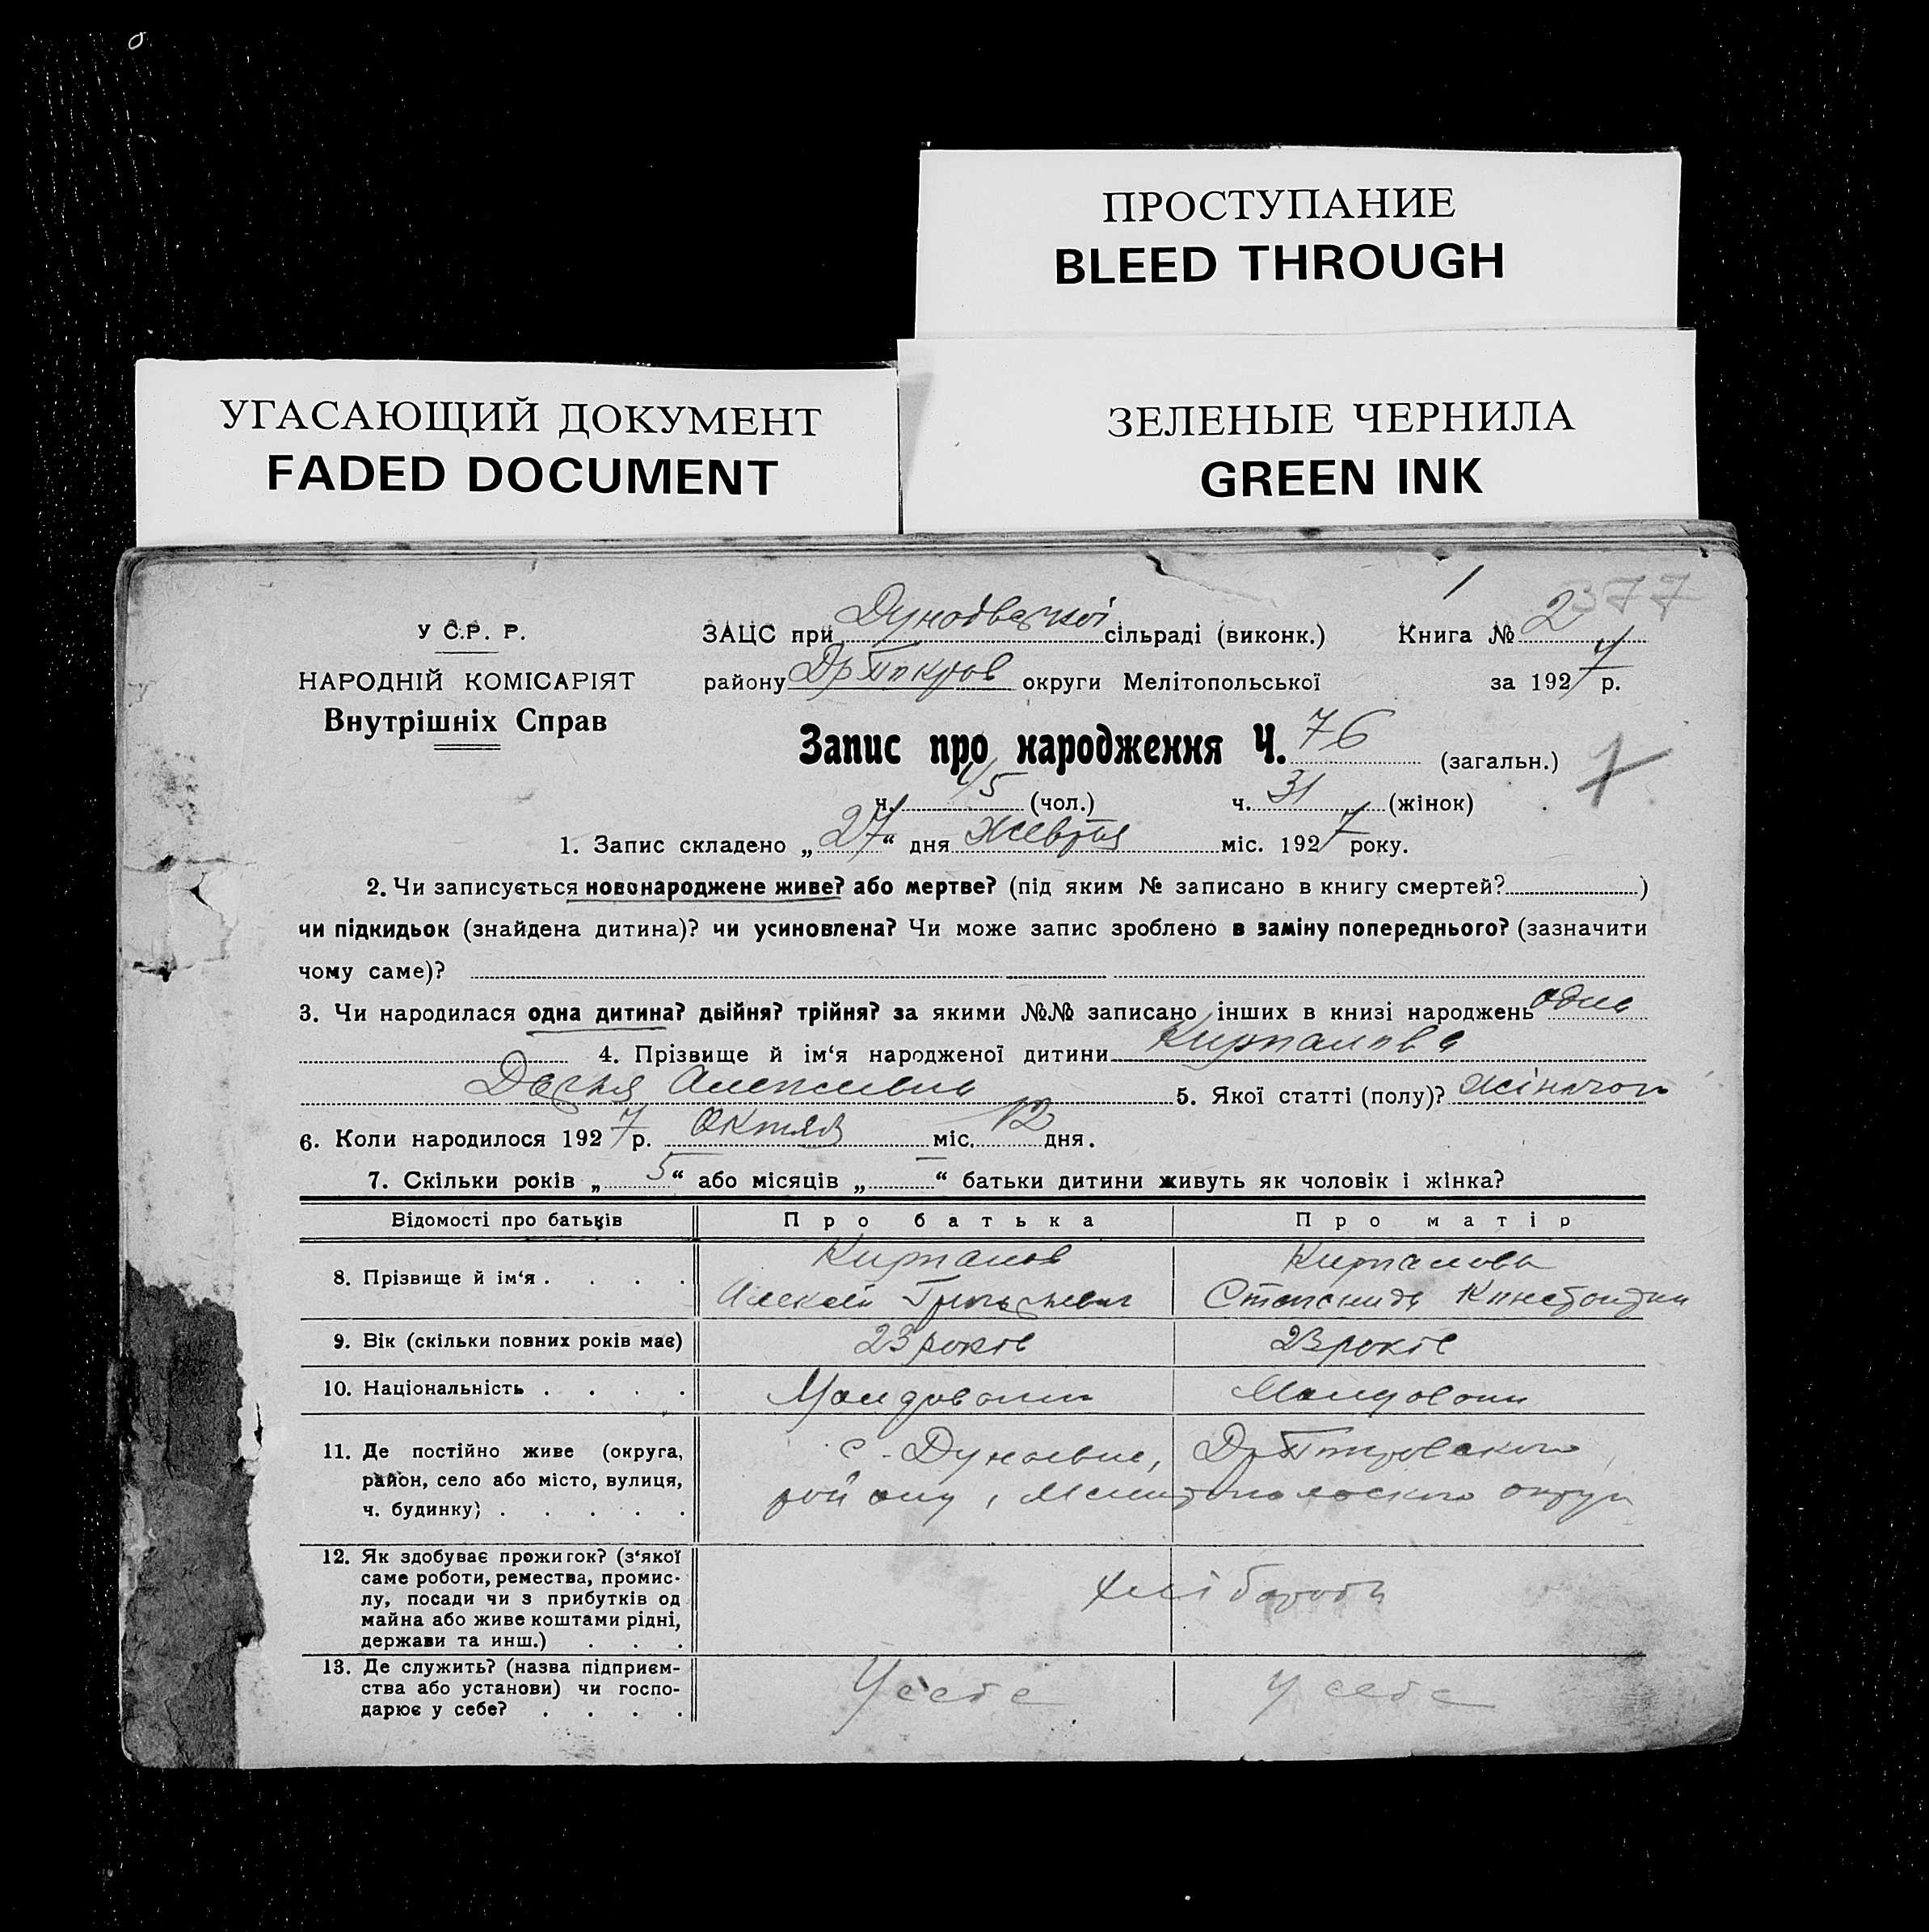 ПРОСТУПАНИЕ
BLEED THROUGH
УГАСАЮЩИЙ ДОКУМЕНТ
FADED DOCUMENT
ЗЕЛЕНЫЕ ЧЕРНИЛА
GREEN INK
1 2377
У С.Р. Р.
НАРОДНІЙ КОМІСАРІЯТ
Внутрішніх Справ
ЗАЦС при сільраді (виконк.) Книга № 2
району округи Мелітопольської за 1927 р.
Запис про народження Ч. 76 (загальн.)
ч. 45 (чол.) ч. 31 (жінок)
1. Запис складено „27“ дня Жевтня міс. 1927 року.
2. Чи записується новонароджене живе? або мертве? (під яким № записано в книгу смертей? )
чи підкидьок (знайдена дитина)? чи усиновлена? Чи може запис зроблено в заміну попереднього? (зазначити
чому саме)?
3. Чи народилася одна дитина? двійня? трійня? за якими №№ записано інших в книзі народжень одна
4. Прізвище й ім‘я народженої дитини
Дарья Алексеевна 5. Якої статті (полу)?
6. Коли народилося 1927 р. Октяб міс. 12 дня.
7. Скільки років „5“ або місяців „—“ батьки дитини живуть як чоловік і жінка?
Відомості про батьків Про батька Про матір
8. Прізвище й ім‘я . . . .
Алексей Григорьевич
9. Вік (скільки повних років має) 23 років 23 років
10. Національність . . . . Молдован Молдован
11. Де постійно живе (округа, район, село або місто, вулиця, ч. будинку) . . . . .
с. Дунаевка,
району, Мелитопольского округи
12. Як здобуває прожиток? (з‘якої
саме роботи, ремества, промис-
лу, посади чи з прибутків од
майна або живе коштами рідні,
держави та инш.) . . .
хлібороби
13. Де служить? (назва підприєм-
ства або установи) чи госпо-
дарює у себе? . . . .
У себе У себе